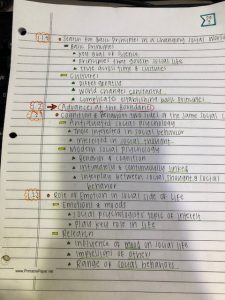 Search for Basic Principles in a Changing Social World
Basic Principles
Key goal of science
Principles that govern social life
True across time & cultures
Cultures
Differ greatly
World change constantly
Complicates establishing basic principles
Advances at the Boundaries
Cognition & Behavior: two sides of the same social
social psychology
interested in social behavior
interested in social thought
Modern social psychology
Behavior & cognition
Intimately & continuously linked
Interplay between social thought & social
behavior
Role of Emotion in Social Side of Life
Emotions & moods
Social psychologists topic of interest
Play key role in life
Research
Influence of mood on social life
Impression of others
Range of social behaviors